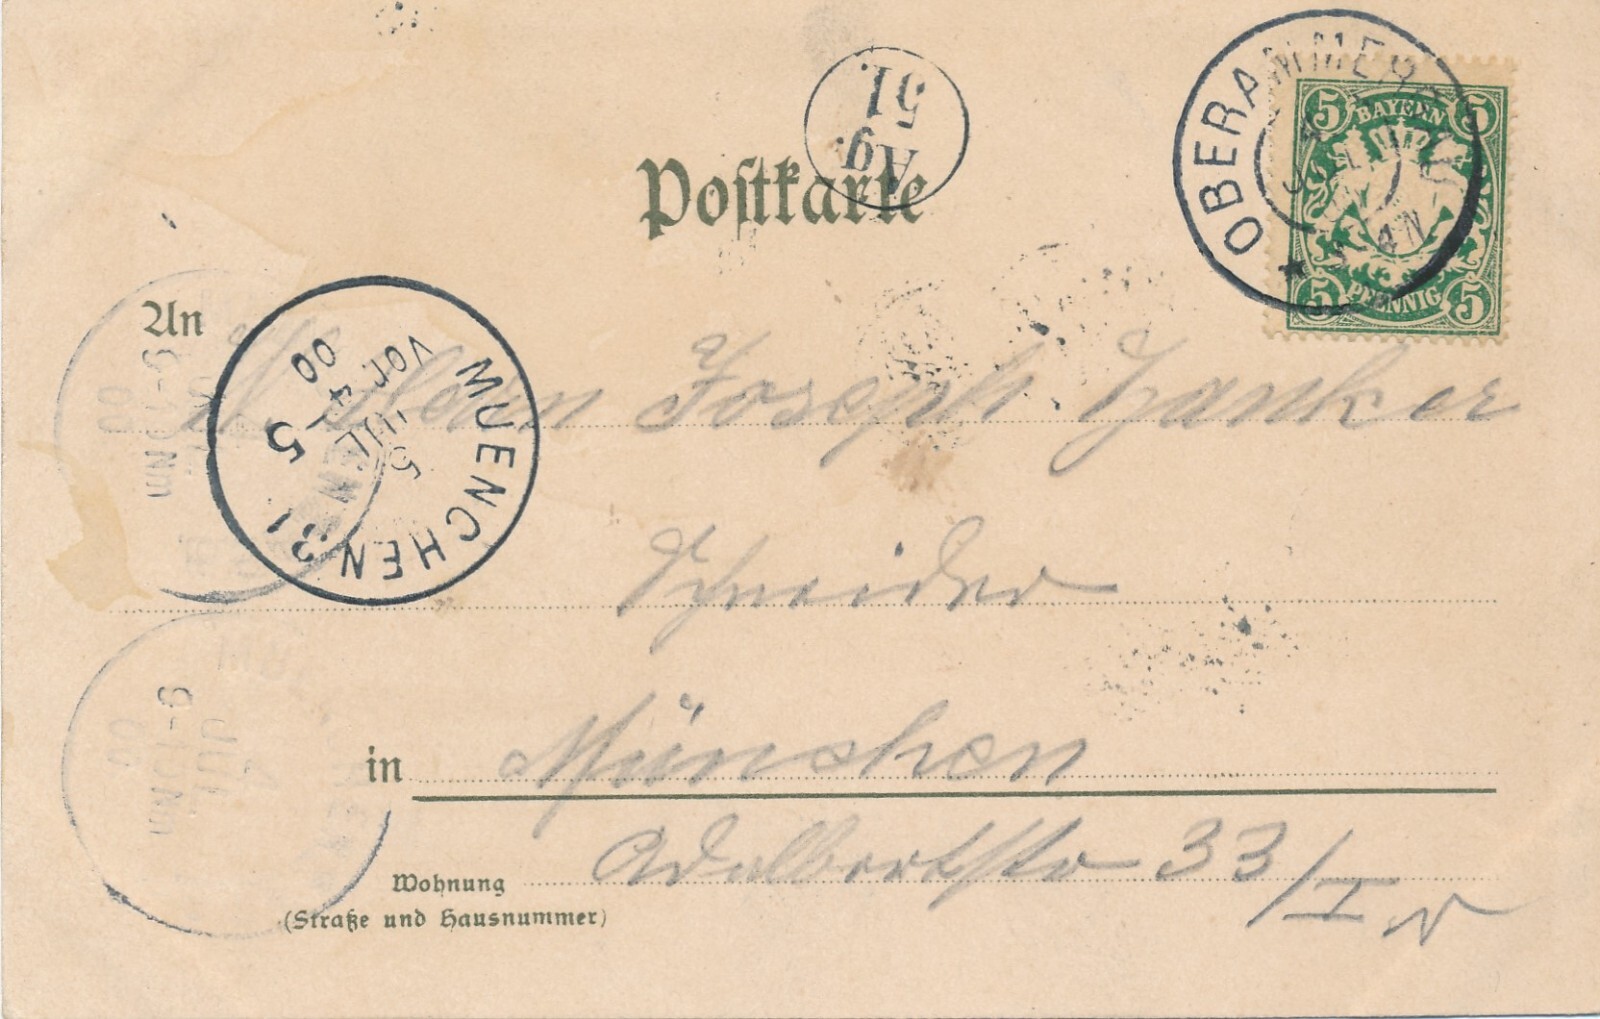 Postkarte
Ag. 51.
OBERAMMERGAU
5 BAYERN 5
5 PFENNIG 5
MUENCHEN 31
5 JUL
Vor. 4-5
00
An
Joseph Zanker
Schneider
in München
Adalbertstr 33/I r
Wohnung
(Straße und Hausnummer)